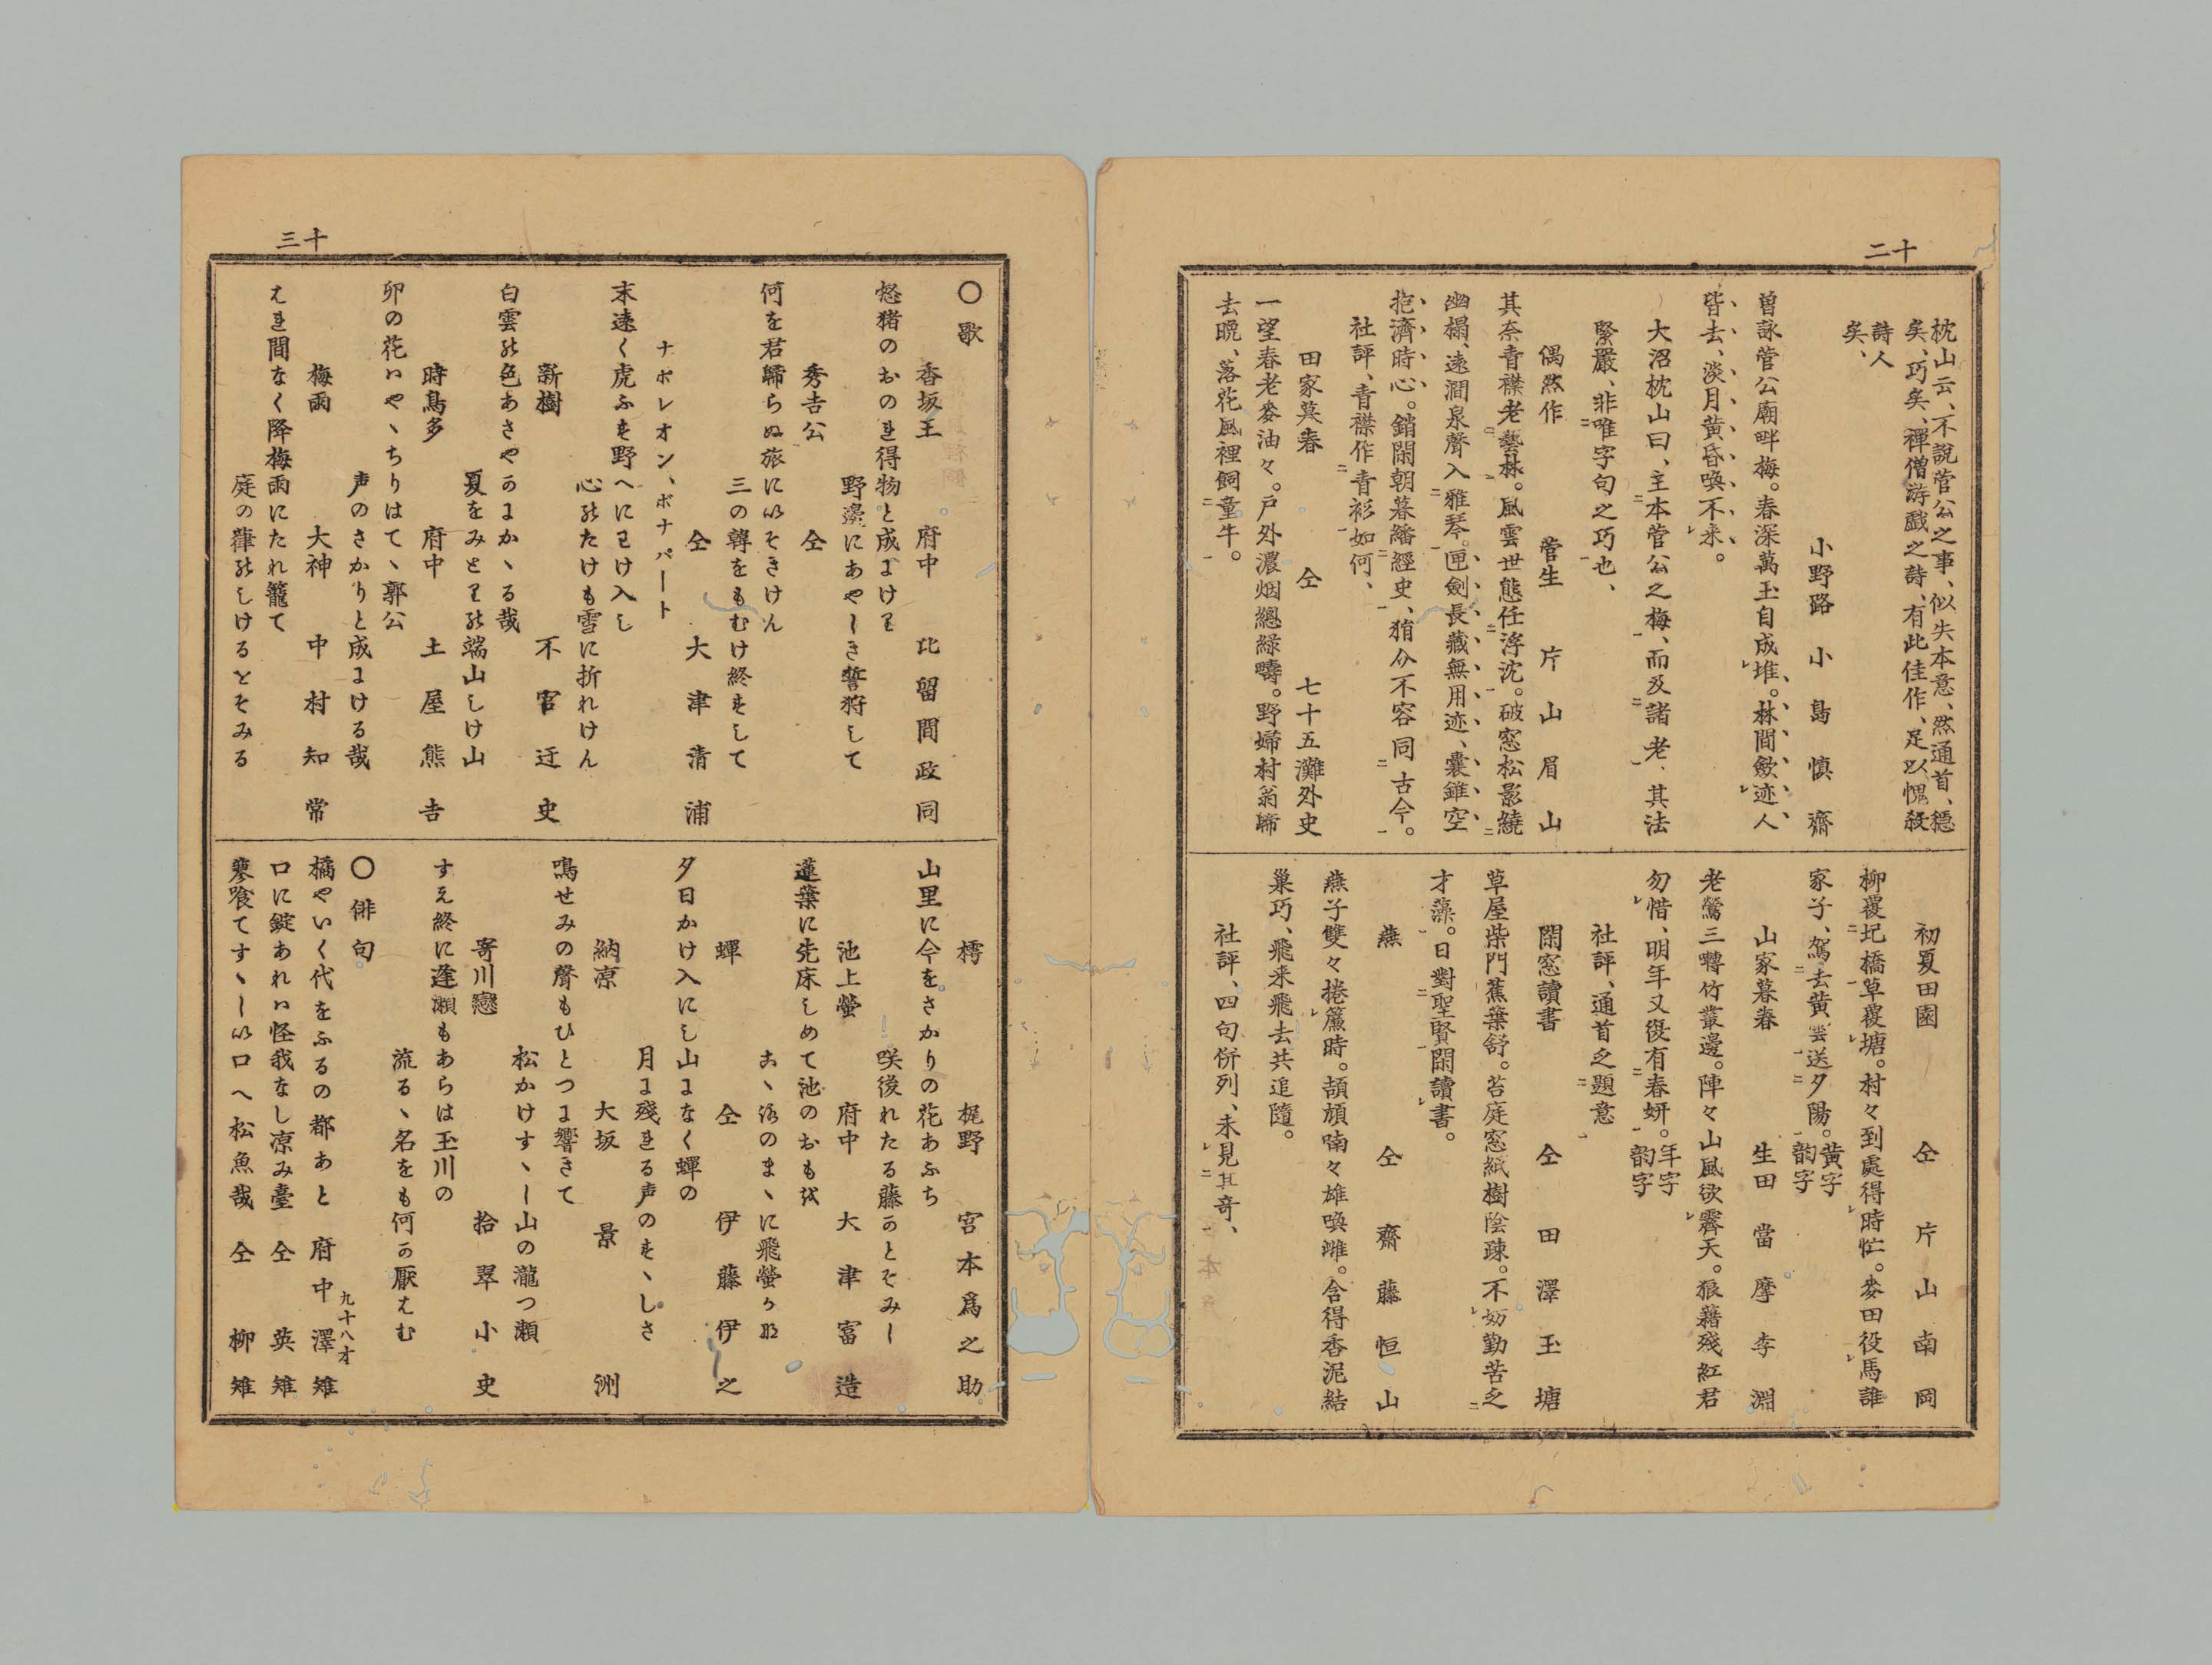 十二
枕山云、不說菅公之事、似失本意、然通首、穩
矣、巧矣、禪僧游戲之詩、有此佳作、足以愧殺
詩人
矣、
小野路 小島慎齋
曽詠菅公廟畔梅。春深萬玉自成堆。林間歛迹人
皆去、淡月黄昏喚不来。
大沼枕山曰、主本菅公之梅、而及諸老、其法
緊嚴、非唯字句之巧也、
偶然作 菅生 片山眉山
其奈青襟老藝林。風雲世態任浮沈。破窓松影繞
幽榻、遠澗泉聲入雅琴。匣劍長藏無用迹、囊錐空
抱濟時心。銷閑朝暮繙經史、猶分不容同古今。
社評、青襟作青衫如何、
田家莫春 仝 七十五灘外史
一望春老麥油々。戸外濃烟總緑疇。野婦村翁歸
去晩、落花風裡飼童牛。
初夏田園 仝 片山南岡
柳覆圮橋草覆塘。村々到處得時忙。麥田役馬誰
家子、駕去黄雲送夕陽。黄字
韵字
山家暮春 生田 當摩李淵
老鶯三囀竹叢邊。陣々山風欲霽天。狼藉殘紅君
勿惜、明年又復有春妍。年字
韵字
社評、通首之題意
閑窓讀書 仝 田澤玉塘
草屋柴門蕉葉舒。苔庭窓紙樹陰疎。不妨勤苦之
才藻。日對聖賢閑讀書。
燕 仝 齋藤恒山
燕子雙々捲簾時。頡頏喃々雄喚雌。含得香泥結
巢巧、飛来飛去共追隨。
社評、四句併列、未見其奇、
十三
〇歌
香坂王 府中 比留間政同
怒猪のおのれ得物と成まけり
野邊にあやしき誓狩して
秀吉公 仝
何を君歸らぬ旅にいそきけん
三の韓をもむけ終すして
仝 大津清浦
ナポレオン、ボナパート
末遠く虎ふす野へにわけ入し
心のたけも雪に折れけん
新樹 不官迂史
白雲の色あさやかまかヽる哉
夏をみとりの端山しけ山
時鳥多 府中 土屋熊吉
卯の花ハやヽちりはてヽ郭公
声のさかりと成まける哉
梅雨 大神 中村知常
はれ間なく降梅雨にたれ籠て
庭の葎のしけるをそみる
樗 梶野 宮本爲之助
山里に今をさかりの花あふち
咲後れたる藤かとそみし
池上螢 府中 大津富造
蓮葉に先床しめて池のおもを
こヽろのまヽに飛螢かな
蟬 仝 伊藤伊之
夕日かけ入にし山まなく蟬の
月ま殘れる声のすヽしさ
納凉 大坂 景洲
鳴せみの聲もひとつま響きて
松かけすヽし山の瀧つ瀬
寄川戀 拾翠小史
すえ終に逢瀬もあらは玉川の
流るヽ名をも何か厭はむ
〇俳句
橘やいく代をふるの都あと 府中 九十八才 澤雉
口に錠あれハ怪我なし凉み臺 仝 英雉
寥飡てすヽしい口へ松魚哉 仝 柳雉